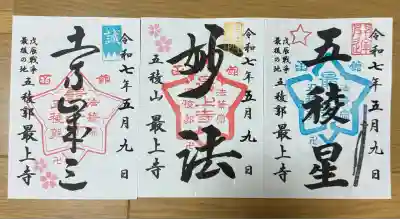 令和七年五月九日
五稜星
戊辰戦争
最後の地
五稜郭 最上寺
令和七年五月九日
妙法
五稜山 最上寺
誠
令和七年五月九日
土方歳三
戊辰戦争
最後の地
五稜郭 最上寺